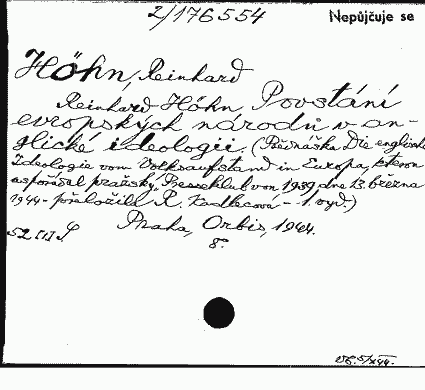 2/176554 Nepůjčuje se
Höhn, Reinhard
Reinhard Höhn Povstání
evropských národů v an-
glické ideologii. (Přednáška Die englische
Ideologie vom Volksaufstand in Europa, kterou
uspořádal pražský „Presseklub von 1939„ dne 13. března
1944 - přeložila R. Kadlecová - 1. vyd.)
Praha, Orbis, 1944.
52 III
8°